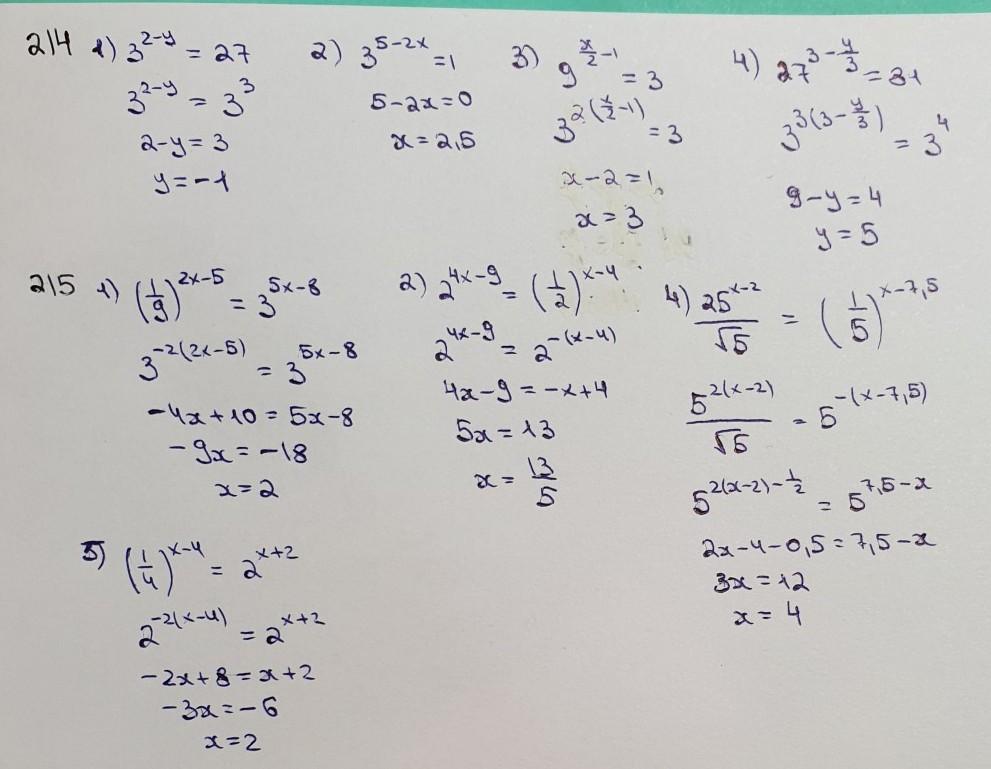 214 1) 3^(2-y) = 27
3^(2-y) = 3^3
2-y = 3
y = -1
2) 3^(5-2x) = 1
5-2x = 0
x = 2,5
3) 9^(x/2 - 1) = 3
3^(2(x/2 - 1)) = 3
x-2 = 1
x = 3
4) 27^(3 - y/3) = 81
3^(3(3 - y/3)) = 3^4
9-y = 4
y = 5
215 1) (1/9)^(2x-5) = 3^(5x-8)
3^(-2(2x-5)) = 3^(5x-8)
-4x+10 = 5x-8
-9x = -18
x = 2
2) 2^(4x-9) = (1/2)^(x-4)
2^(4x-9) = 2^(-(x-4))
4x-9 = -x+4
5x = 13
x = 13/5
4) 25^(x-2)/√5 = (1/5)^(x-7,5)
5^(2(x-2))/√5 = 5^(-(x-7,5))
5^(2(x-2) - 1/2) = 5^(7,5-x)
2x-4-0,5 = 7,5-x
3x = 12
x = 4
3) (1/4)^(x-4) = 2^(x+2)
2^(-2(x-4)) = 2^(x+2)
-2x+8 = x+2
-3x = -6
x = 2